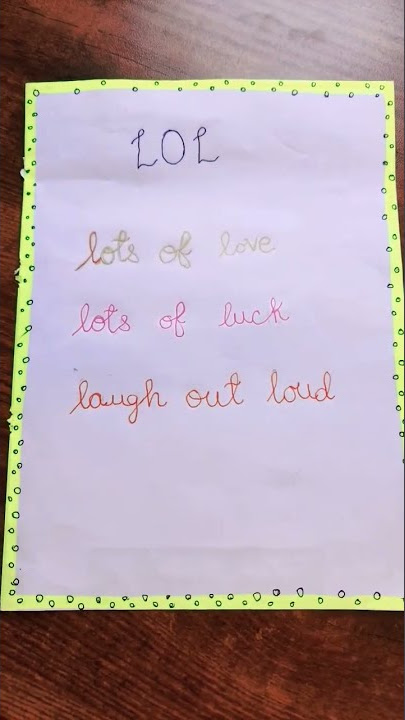 LOL
lots of love
lots of luck
laugh out loud